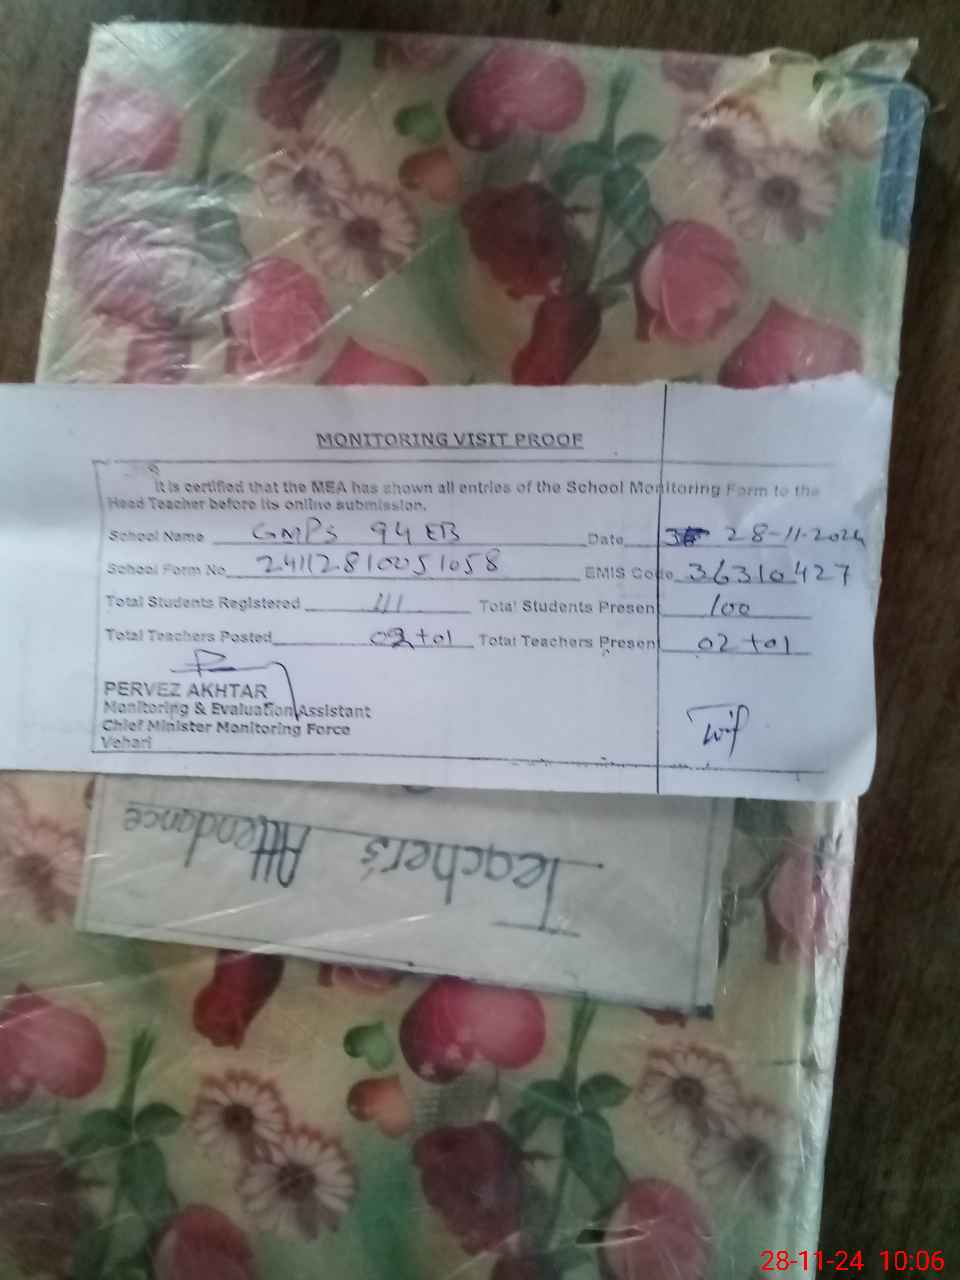 MONITORING VISIT PROOF
It is certified that the MEA has shown all entries of the School Monitoring Form to the
Head Teacher before its online submission.
School Name GMPS 94 EB Date 28-11-2024
School Form No 24112810051058 EMIS Code 36310427
Total Students Registered 111 Total Students Presen 100
Total Teachers Posted 02+01 Total Teachers Presen 02+01
PERVEZ AKHTAR
Monitoring & Evaluation Assistant
Chief Minister Monitoring Force
Vehari
Teacher's Attendance
28-11-24 10:06